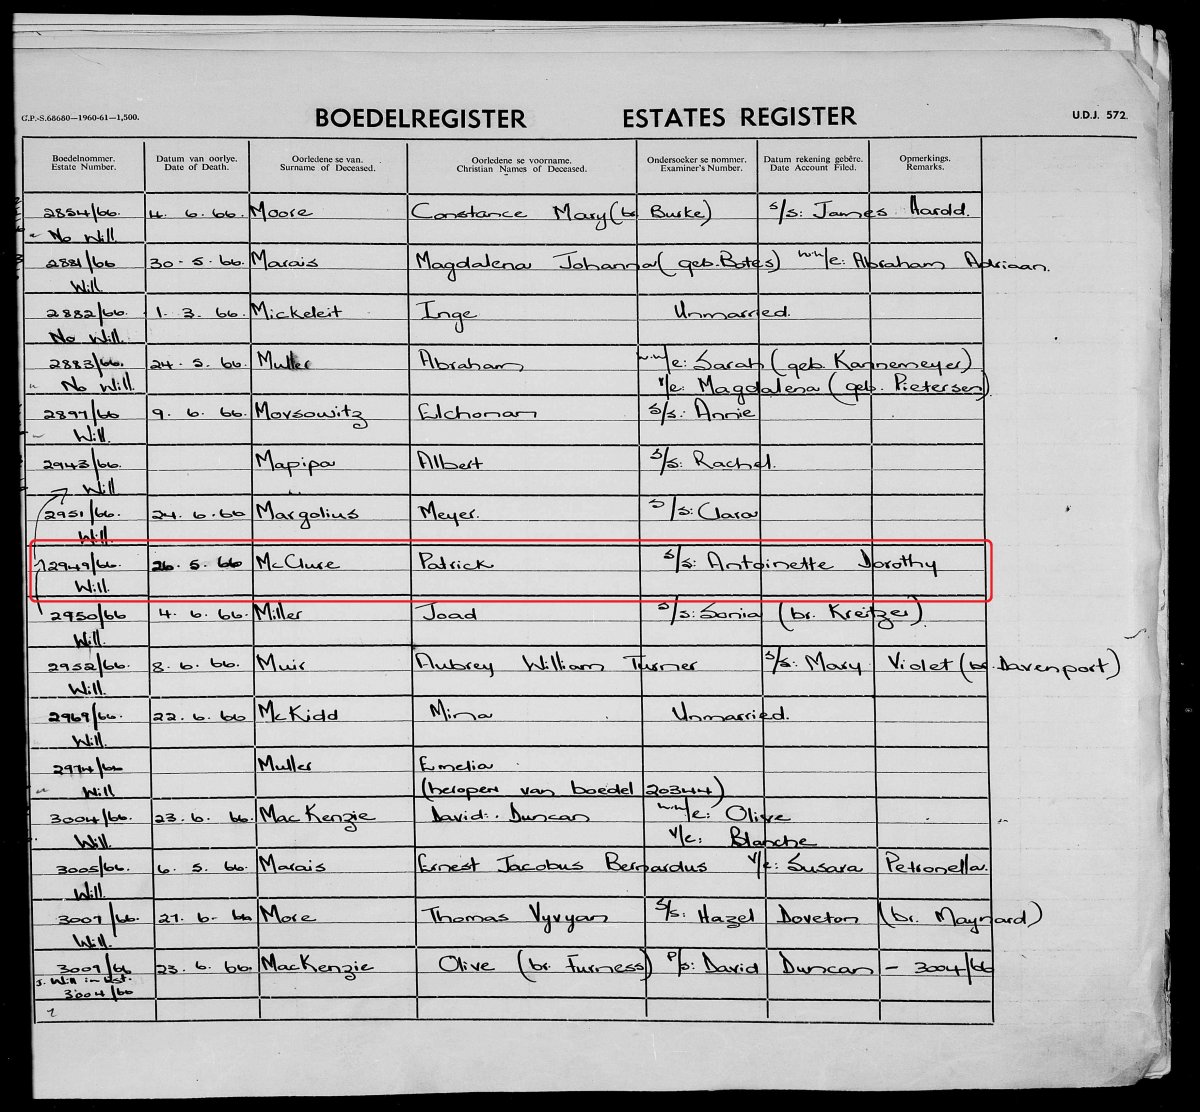 G.P.-S.68680—1960-61—1,500. BOEDELREGISTER ESTATES REGISTER U.D.J. 572.
Boedelnommer. Datum van oorlye. Oorledene se van. Oorledene se voorname. Ondersoeker se nommer. Datum rekening gebêre. Opmerkings.
Estate Number. Date of Death. Surname of Deceased. Christian Names of Deceased. Examiner's Number. Date Account Filed. Remarks.
2854/66. 4. 6. 66. Moore Constance Mary (br Burke) s/s: James Harold.
No Will.
2881/66 30. 5. 66. Marais Magdalena Johanna (geb. Botes) w.w/e: Abraham Adriaan.
Will.
2882/66. 1. 3. 66. Mickeleit Inge Unmarried.
No Will.
2883/66. 24. 5. 66. Muller Abraham w.w/e: Sarah (geb. Kannemeyer)
No Will. v/e: Magdalena (geb. Pietersen)
2897/66 9. 6. 66. Movsowitz Elchonan s/s: Annie
Will.
2943/66. Mapipa Albert s/s: Rachel.
Will
2951/66. 24. 6. 66 Margolius Meyer. s/s: Clara
Will.
2949/66. 26. 5. 66 McClure Patrick s/s: Antoinette Dorothy
Will.
2950/66 4. 6. 66. Miller Joad s/s: Sonia (br. Kreitzer)
Will.
2952/66. 8. 6. 66. Muir Aubrey William Turner s/s: Mary Violet (br. Davenport)
Will.
2969/66. 22. 6. 66 McKidd Mina Unmarried.
Will.
2974/66 Muller Emelia
Will (heropen van boedel 20344)
3004/66. 23. 6. 66. MacKenzie David. Duncan w.w/e: Olive
Will. v/e: Blanche
3005/66. 6. 5. 66. Marais Ernest Jacobus Bernardus v/e: Susara Petronella.
Will.
3007/66. 27. 6. 66 More Thomas Vyvyan s/s: Hazel Doveton (br. Maynard)
Will.
3009/66 23. 6. 66. MacKenzie Olive (br. Furness) p/s: David Duncan - 3004/66
J. Will in Est.
3004/66